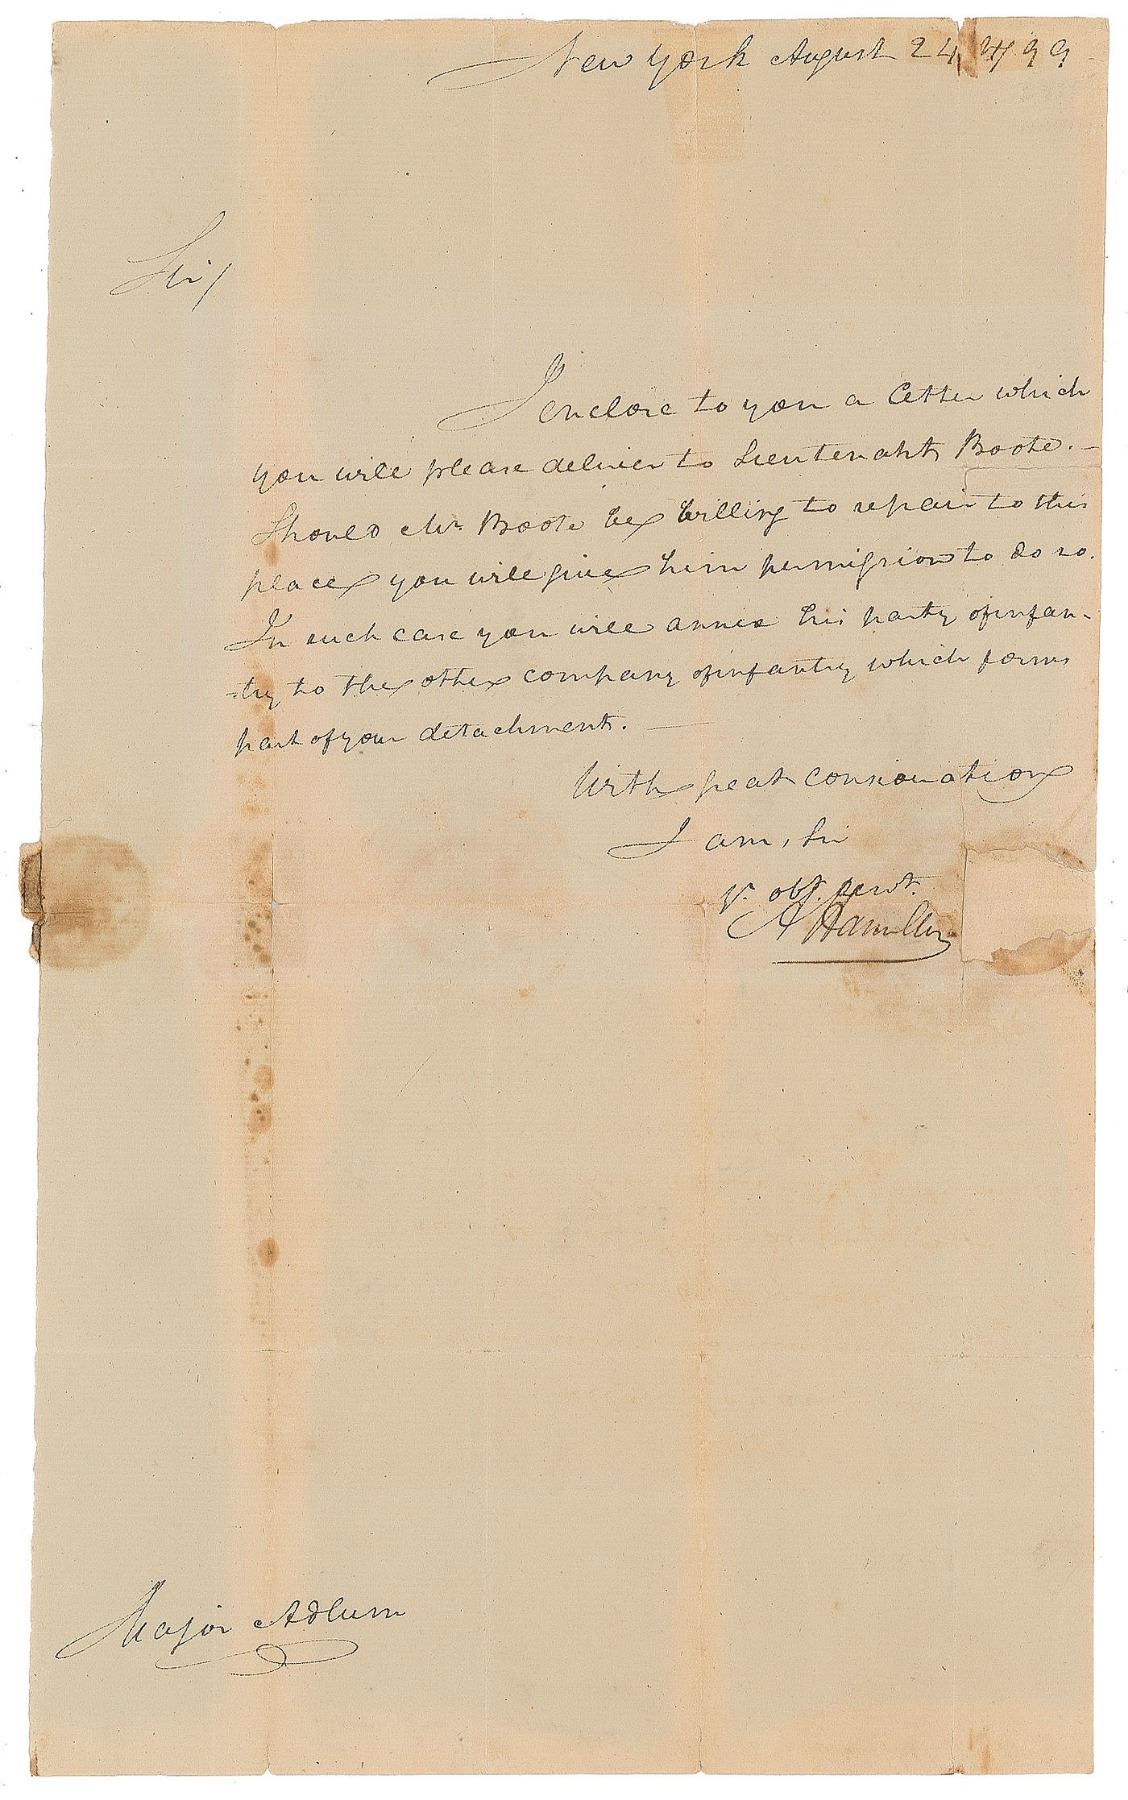 New York August 24, 1799
Sir/
I enclose to you a letter which
you will please deliver to Lieutenant Boote. —
Should Mr Boote be willing to repair to this
place you will give him permission to do so.
In such case you will annex his party of infan-
-try to the other company of infantry which forms
part of your detachment. —
With great consideration
I am, Sir
yr. obt. servt.
A Hamilton
Major Adlum